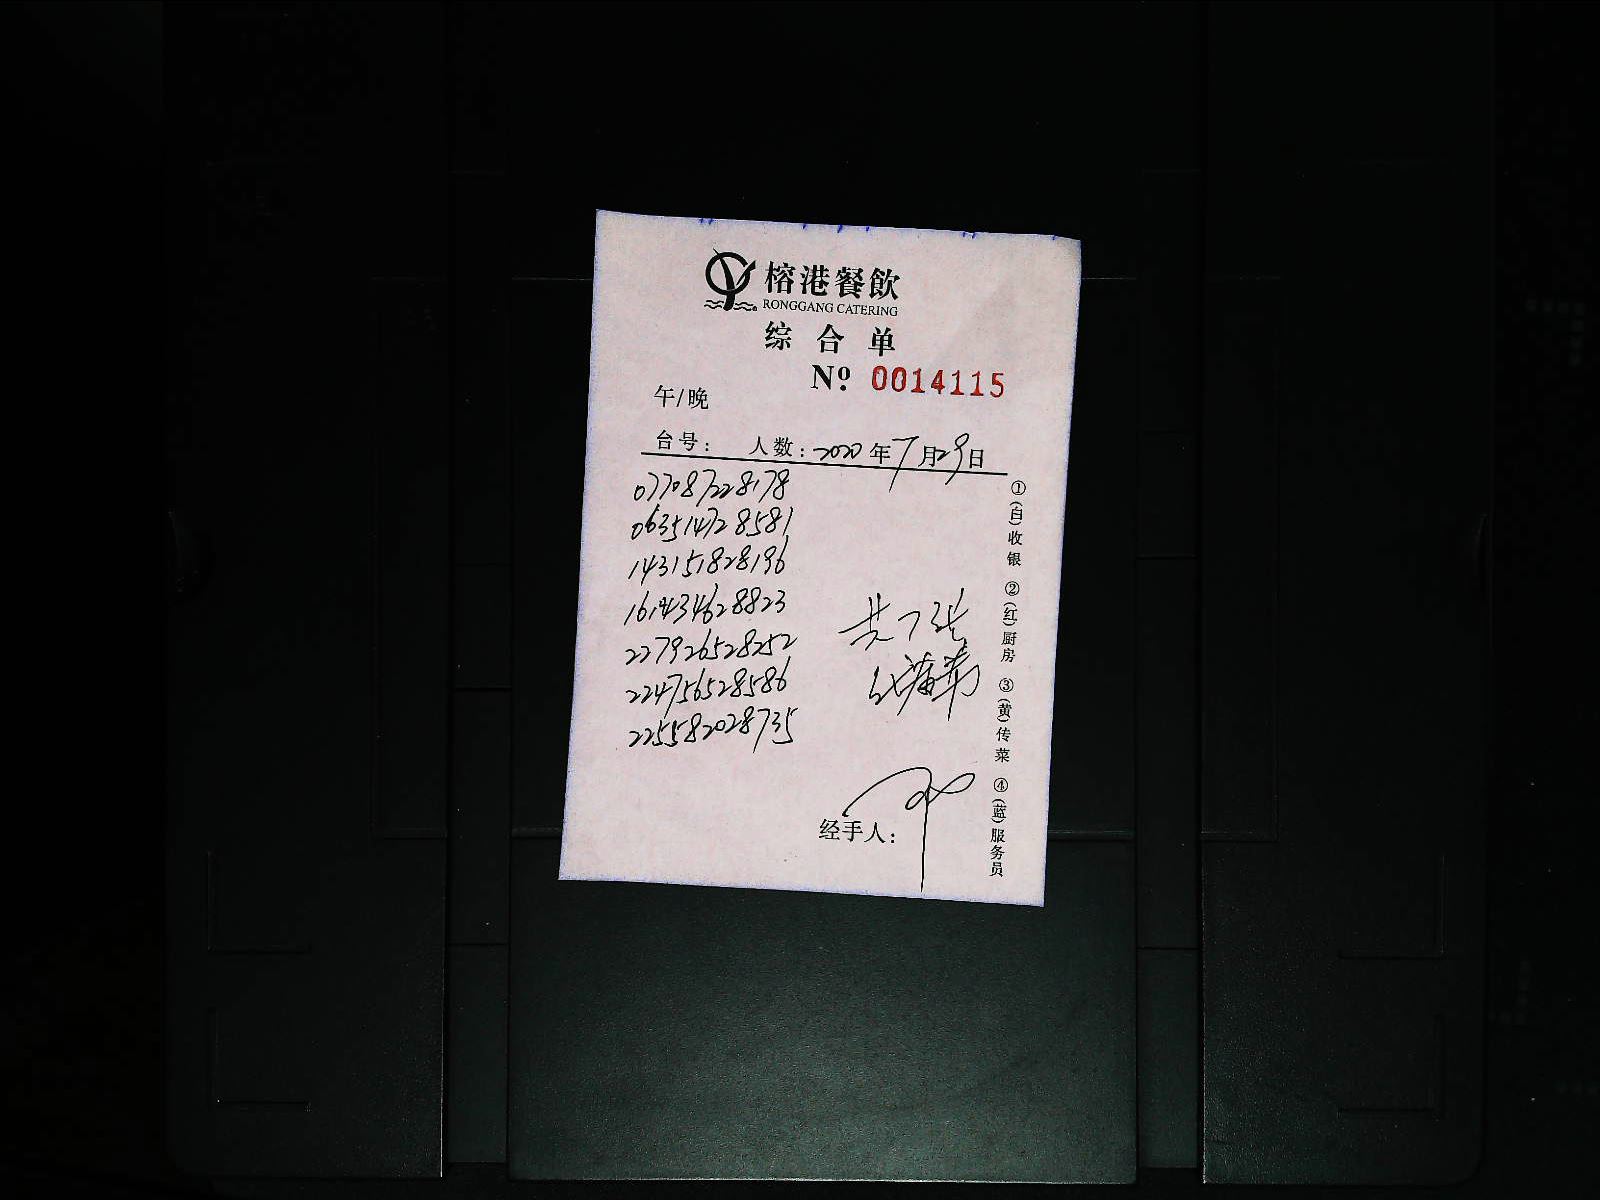 榕港餐飲
RONGGANG CATERING
综合单
No 0014115
午/晚
台号: 人数: 2020年7月29日
077087228178
063514728581
143151828196
161434628823
227926528252
224756528586
225582028735
共7张
经手人:
①(白)收银 ②(红)厨房 ③(黄)传菜 ④(蓝)服务员